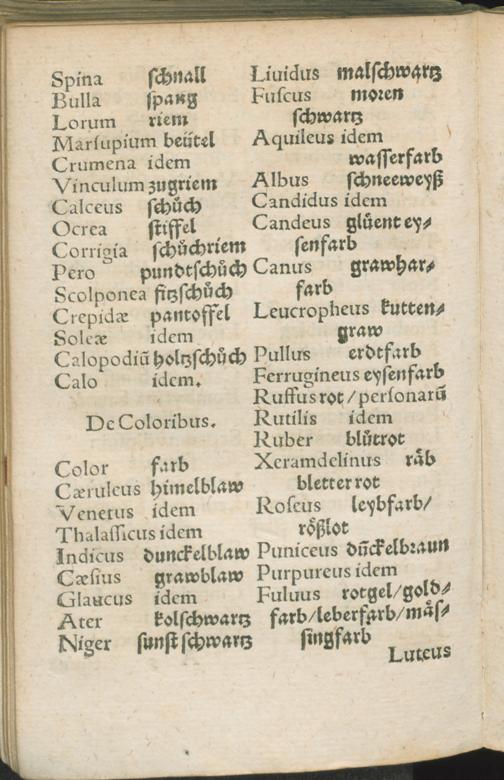 Spina schnall
Bulla spang
Lorum riem
Marsupium beütel
Crumena idem
Vinculum zugriem
Calceus schůch
Ocrea stiffel
Corrigia schůchriem
Pero pundtschůch
Scolponea fitzschůch
Crepidæ pantoffel
Soleæ idem
Calopodiū holtzschůch
Calo idem.
De Coloribus.
Color farb
Cæruleus himelblaw
Venetus idem
Thalassicus idem
Indicus dunckelblaw
Cæsius grawblaw
Glaucus idem
Ater kolschwartz
Niger sunst schwartz
Liuidus malschwartz
Fuscus moren
schwartz
Aquileus idem
wasserfarb
Albus schneeweyß
Candidus idem
Candeus glüent ey⸗
senfarb
Canus grawhar⸗
farb
Leucropheus kutten⸗
graw
Pullus erdtfarb
Ferrugineus eysenfarb
Ruffus rot / personarū
Rutilis idem
Ruber blůtrot
Xeramdelinus råb
bletter rot
Roseus leybfarb/
rößlot
Puniceus dūckelbraun
Purpureus idem
Fuluus rotgel/gold⸗
farb/leberfarb/mås⸗
singfarb
Luteus